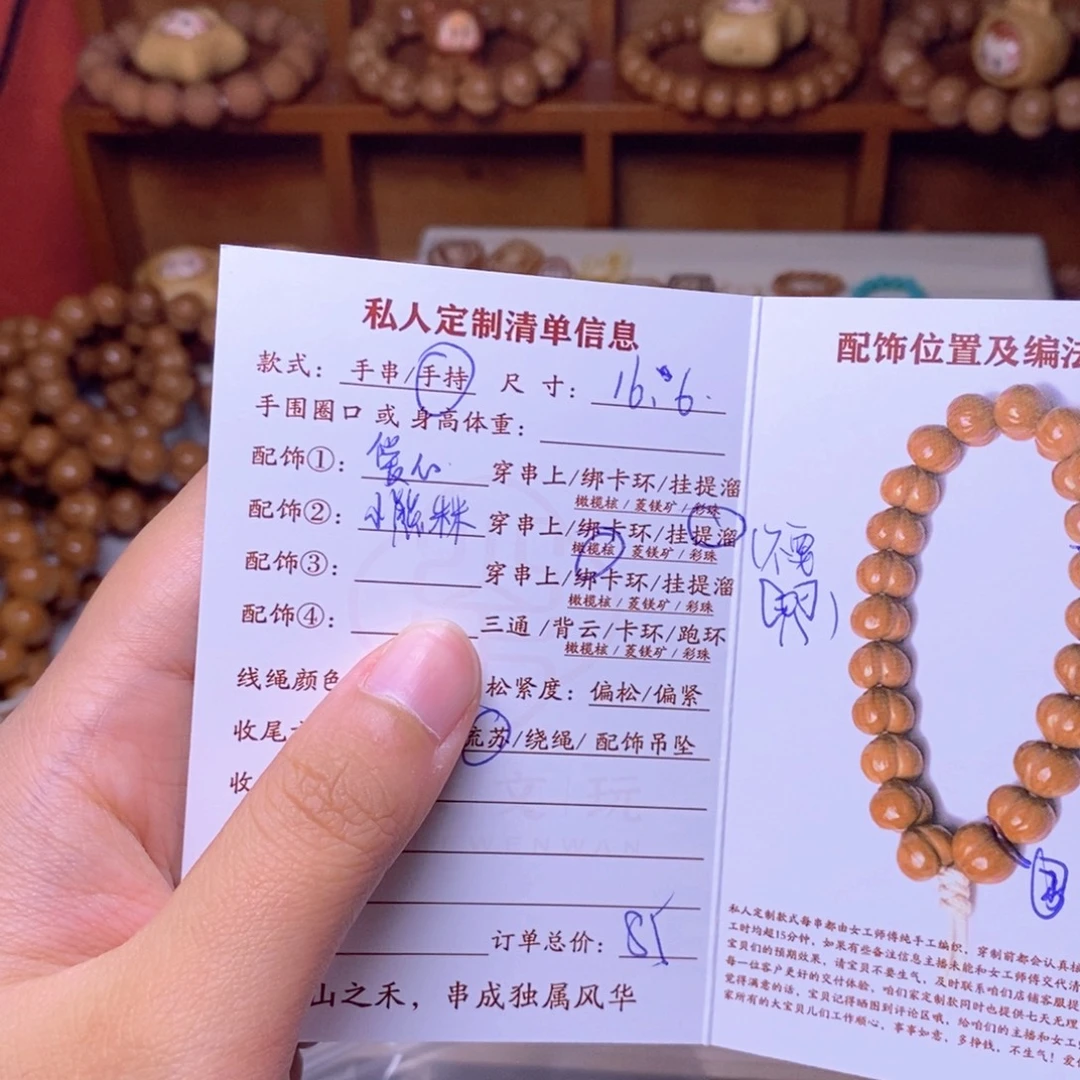 私人定制清单信息
款式：手串/手持 尺寸：16.6.
手围圈口 或 身高体重：
配饰①：爱心 穿串上/绑卡环/挂提溜
橄榄核/菱镁矿/彩珠
配饰②：小熊 穿串上/绑卡环/挂提溜
橄榄核/菱镁矿/彩珠
配饰③： 穿串上/绑卡环/挂提溜
橄榄核/菱镁矿/彩珠
配饰④： 三通/背云/卡环/跑环
橄榄核/菱镁矿/彩珠
线绳颜色 松紧度：偏松/偏紧
收尾 流苏/绕绳/配饰吊坠
收
文玩
WENWAN
订单总价：85
山之禾，串成独属风华
配饰位置及编法
私人定制款式每串都由女工师傅纯手工编织，穿制前都会认真
工时均超15分钟，如果有些备注信息主播未能和女工师傅交代清
宝贝们的预期效果，请宝贝不要生气，及时联系咱们店铺客服提
每一位客户更好的交付体验，咱们家定制款同时也提供七天无理
觉得满意的话，宝贝记得晒图到评论区哦，给咱们的主播和女工
家所有的大宝贝儿们工作顺心，事事如意，多挣钱，不生气！爱